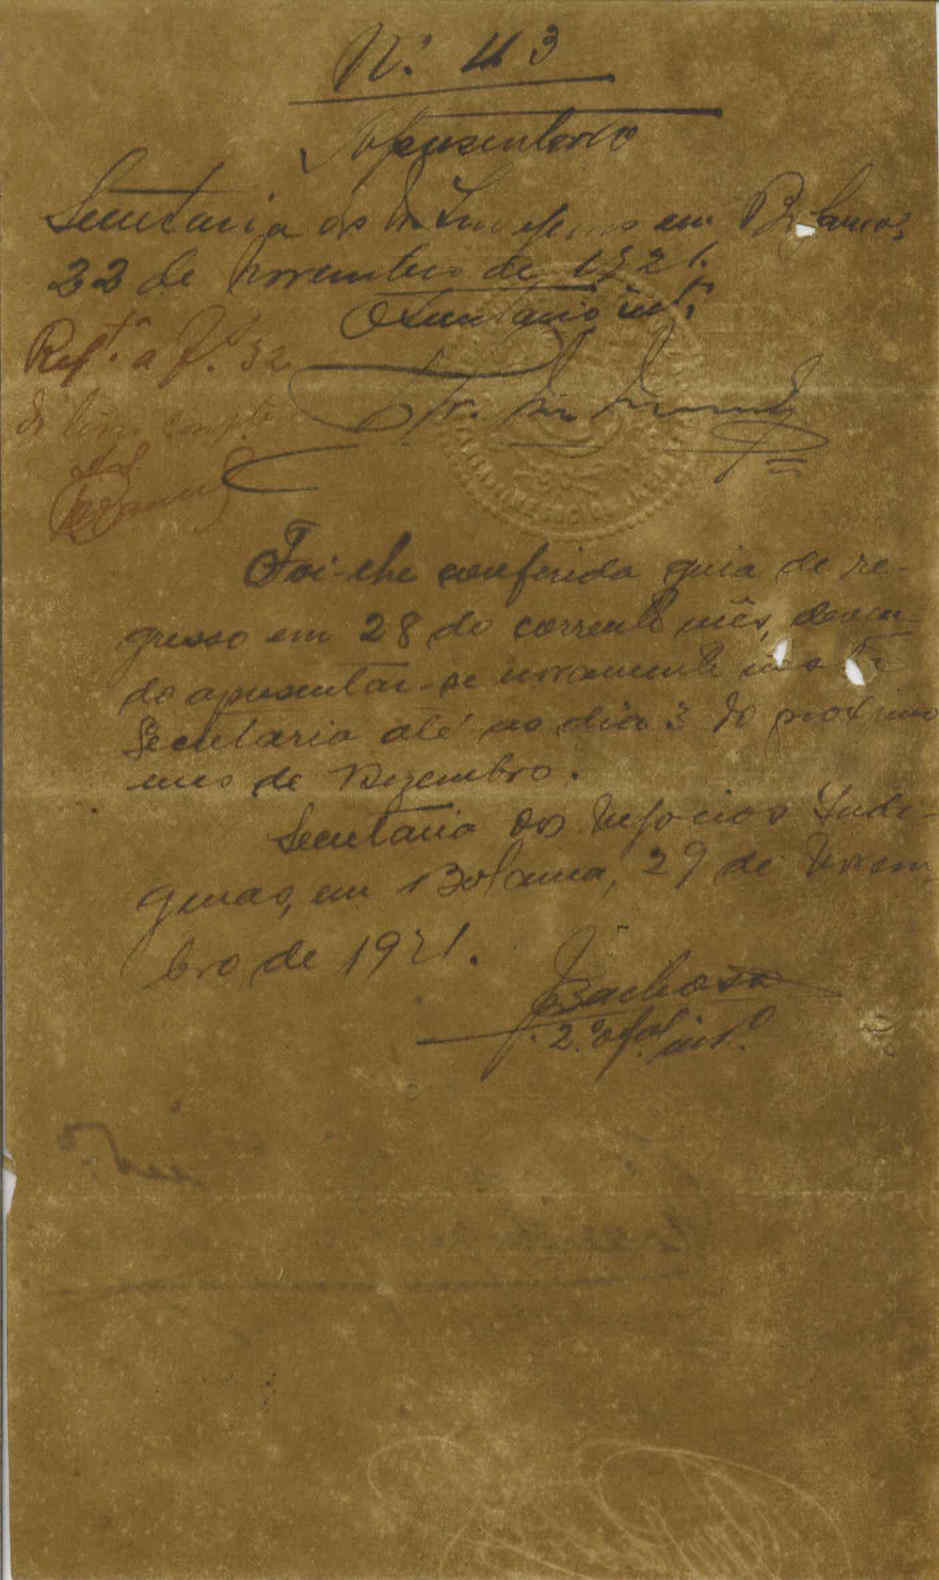 Nº 113
Apresentou-se
Secretaria dos N. Indigenas em Bolama,
22 de novembro de 1921.
O Secretario intº
Regtº. a fl. 32
do livro compte
Foi-lhe conferida guia de re-
gresso em 28 do corrente mês, deven-
do apresentar-se novamente nesta
Secretaria até ao dia 3 do proximo
mes de Dezembro.
Secretaria dos Negocios Indi-
genas, em Bolama, 29 de Novem-
bro de 1921.
J Barbosa
2.º ofal intº.